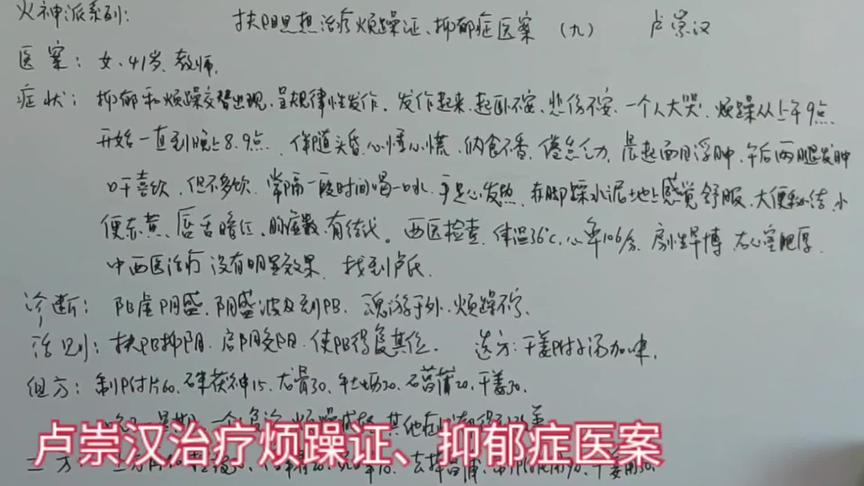 火神派系列: 扶阳思想治疗烦躁证、抑郁症医案 (九) 卢崇汉
医案: 女、41岁、教师,
症状: 抑郁和烦躁交替出现,呈规律性发作,发作起来,起卧不安,悲伤不安、一个人大哭,烦躁从上午9点
开始一直到晚上8.9点. 伴随头昏、心悸心慌,纳食不香,倦怠乏力,晨起面目浮肿,午后两腿发肿
口干喜饮,但不多饮,常隔一段时间喝一口水,手足心发热,在脚踩水泥地上感觉舒服,大便秘结,小
便赤黄、唇舌暗红、脉症数,有结代。西医检查,体温36℃,心率106/分、房性早搏,右心室肥厚.
中西医治疗没有明显效果,找到卢氏.
诊断: 阳虚阴盛、阴盛波及到阳,魂游于外、烦躁不宁、
治则: 扶阳抑阴、启阴交阳,使阳得复其位. 选方:干姜附子汤加味,
组方: 制附片60、朱茯神15、龙骨30、牡蛎30、石菖蒲20、干姜30.
卢崇汉治疗烦躁证、抑郁症医案